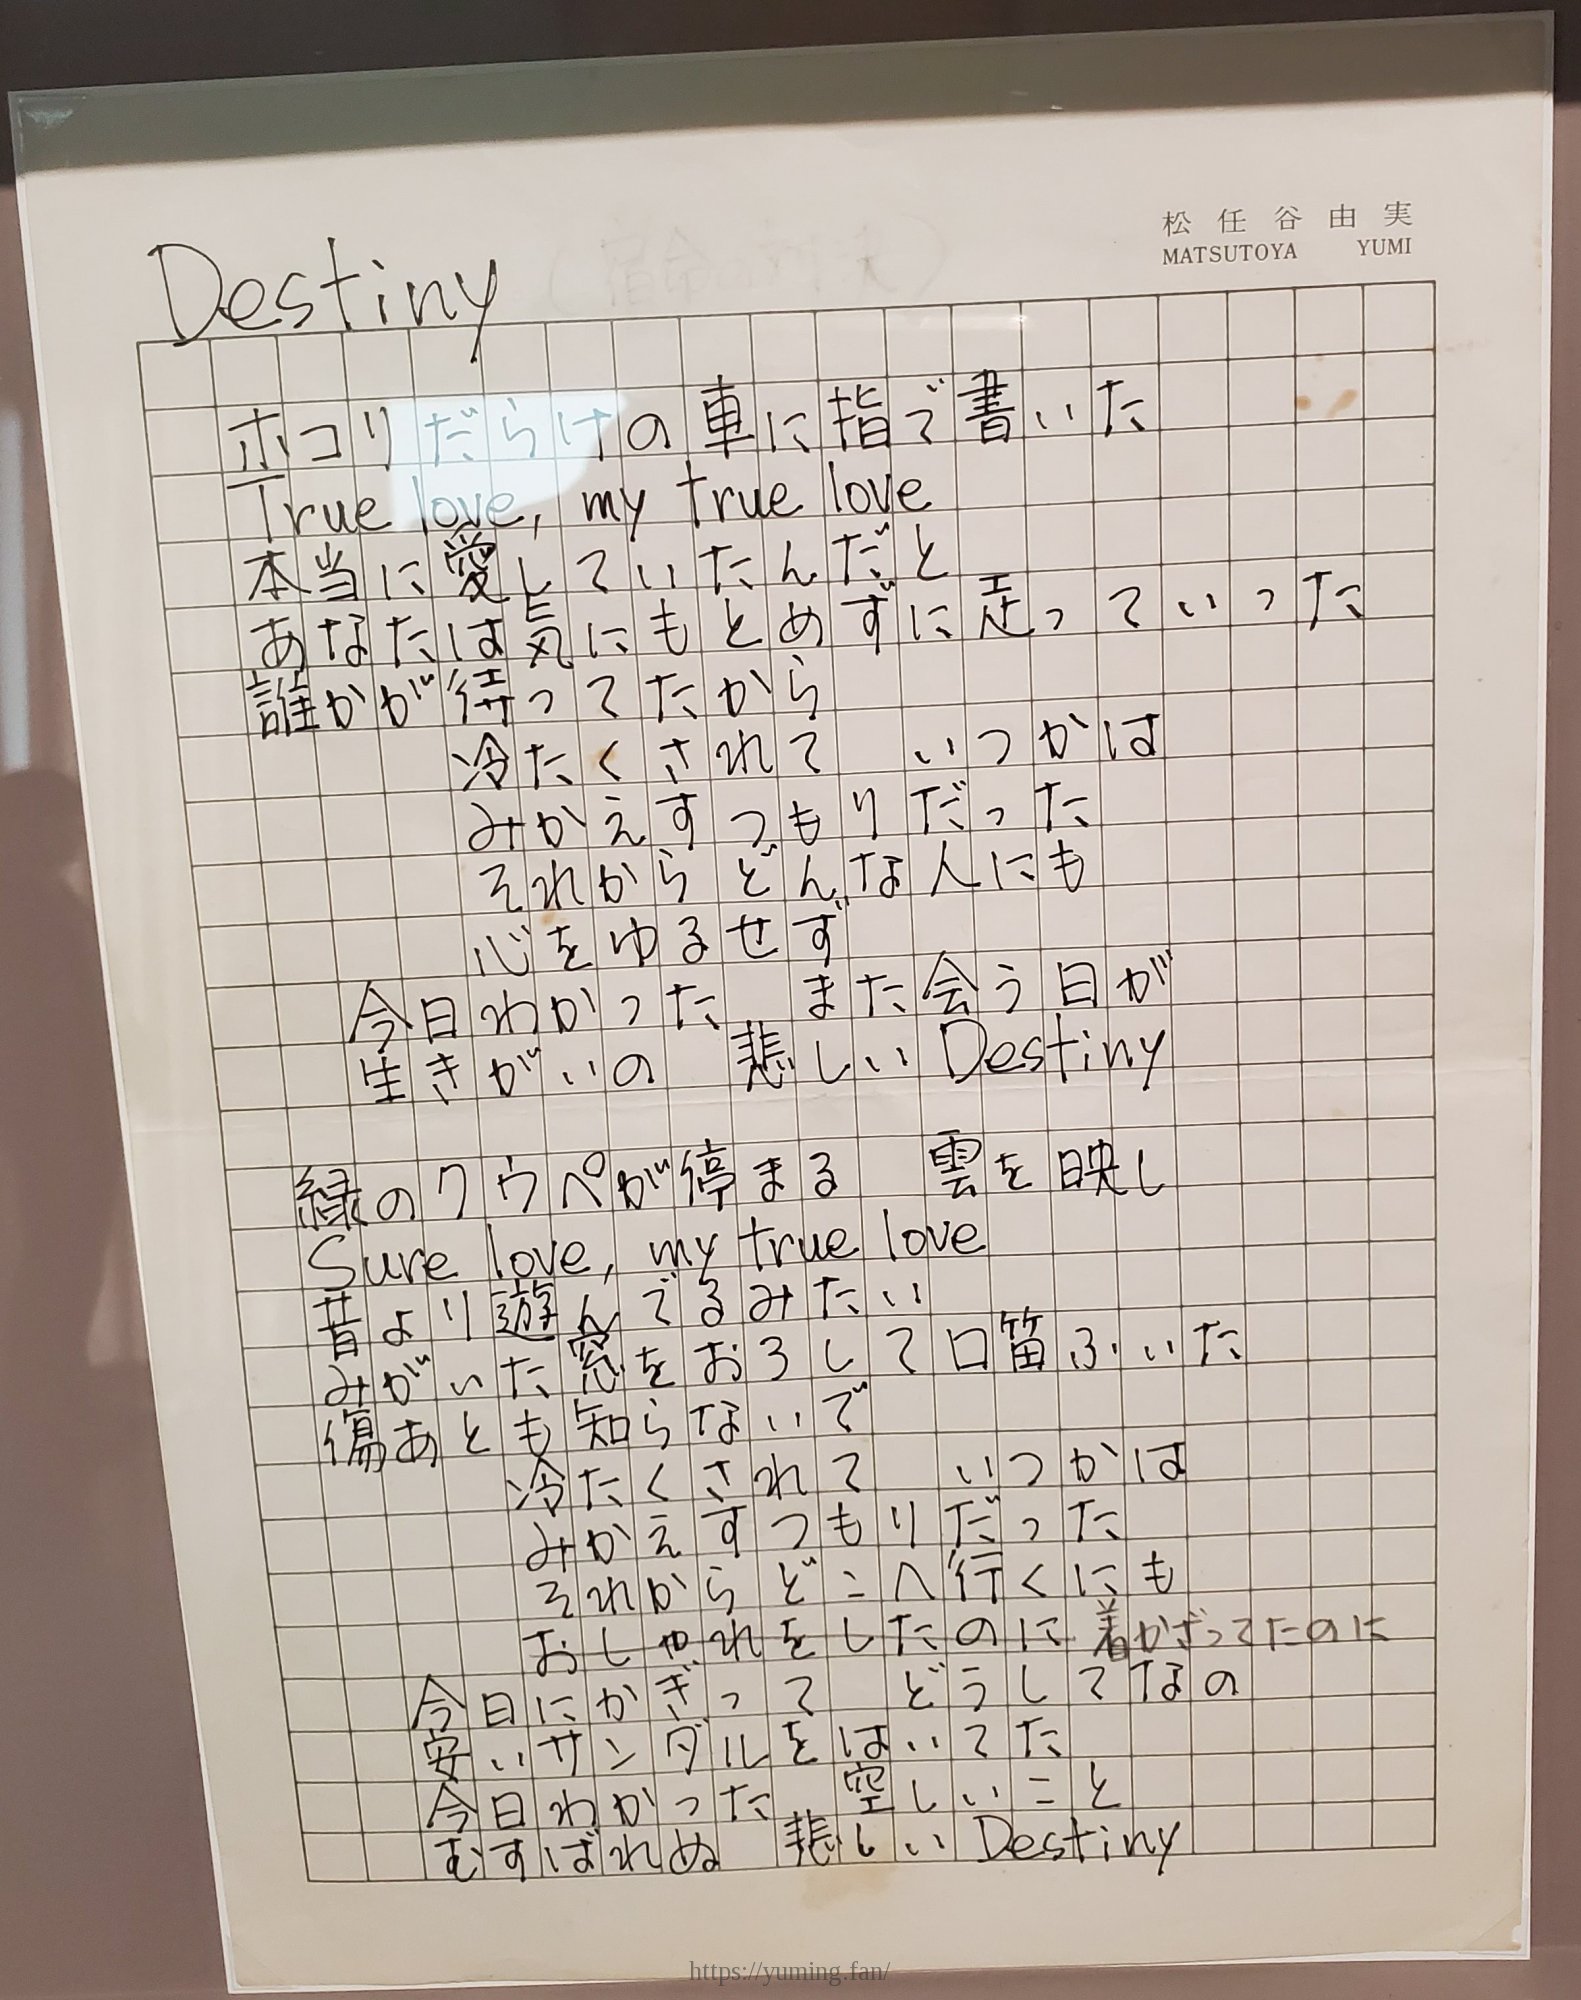 松任谷由実
MATSUTOYA YUMI
Destiny
ホコリだらけの車に指で書いた
True love, my true love
本当に愛していたんだと
あなたは気にもとめずに走っていった
誰かが待ってたから
冷たくされて いつかは
みかえすつもりだった
それからどんな人にも
心をゆるせず
今日わかった また会う日が
生きがいの 悲しい Destiny
緑のクウペが停まる 雲を映し
Sure love, my true love
昔より遊んでるみたい
みがいた窓をおろして口笛ふいた
傷あとも知らないで
冷たくされて いつかは
みかえすつもりだった
それからどこへ行くにも
おしゃれをしたのに 着かざってたのに
今日にかぎって どうしてなの
安いサンダルをはいてた
今日わかった 空しいこと
むすばれぬ 悲しい Destiny
https://yuming.fan/